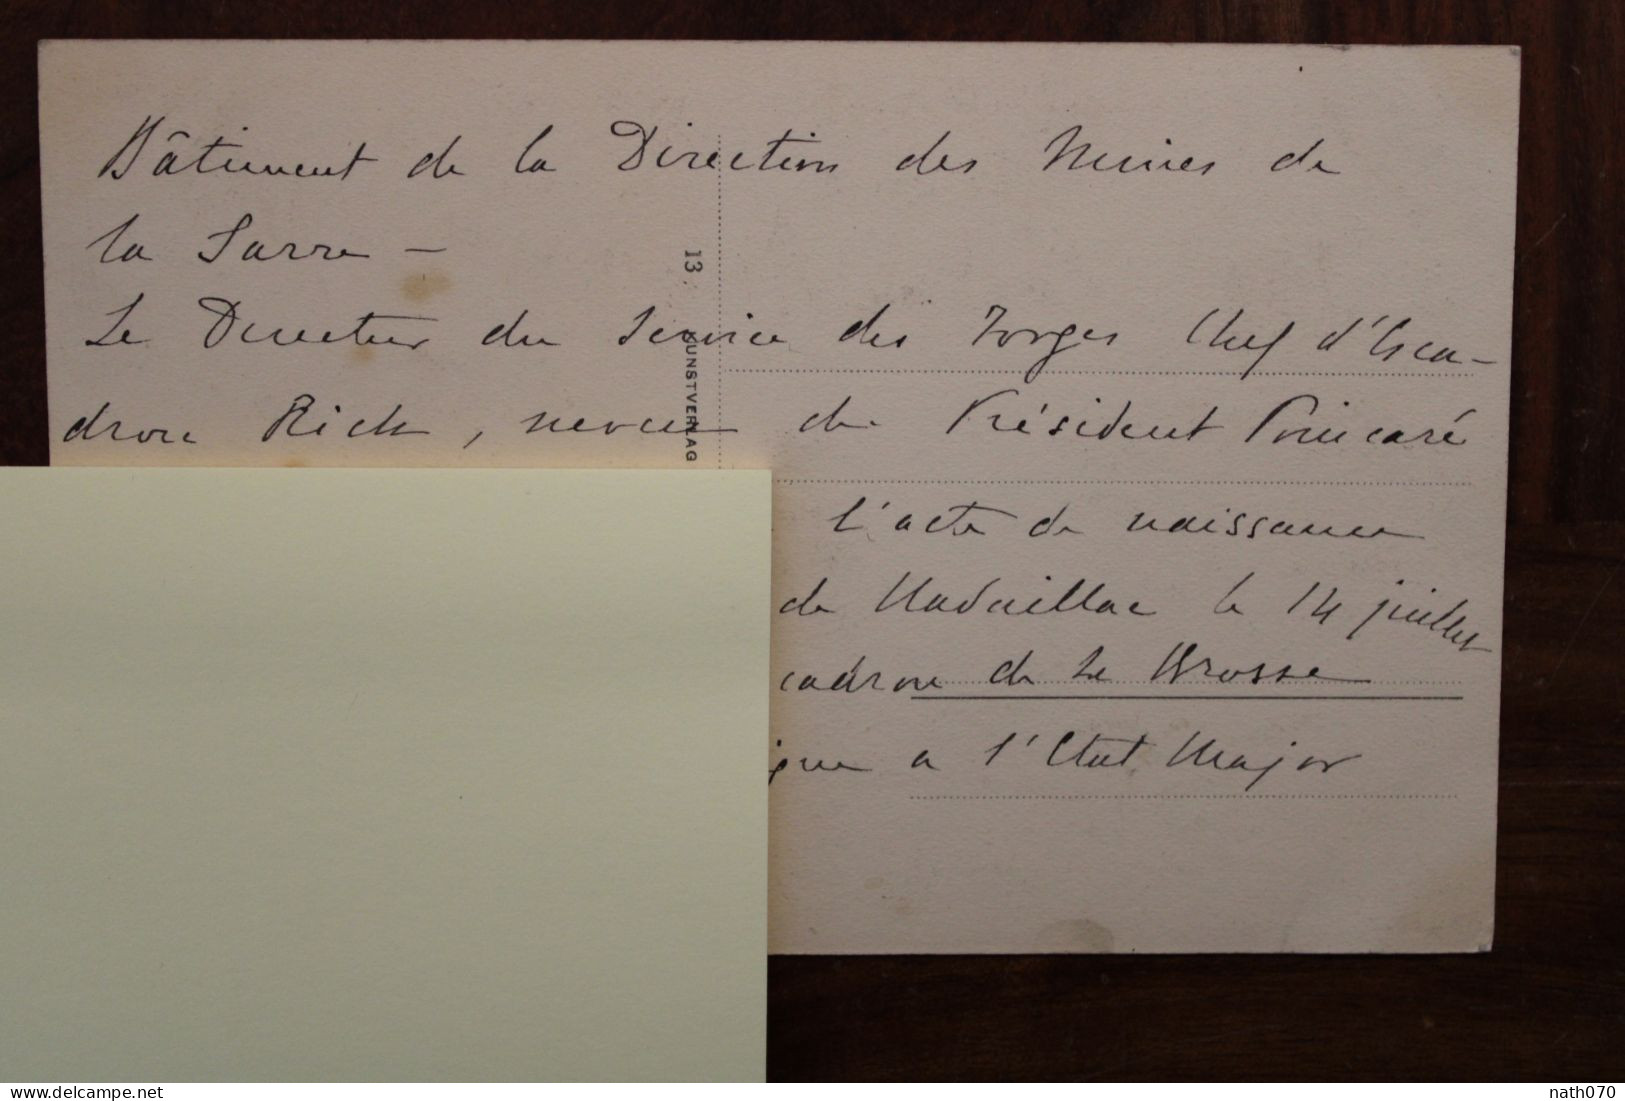 Bâtiment de la Direction des Mines de
la Sarre —
13
KUNSTVERLAG
Le Directeur du Service des Forges Chef d'Esca-
dron Rich, neveu du Président Poincaré
l'acte de naissance
de Madaillac le 14 juillet
cadron de la Brosse
ique a l'Etat Major
www.delcampe.net
nath070